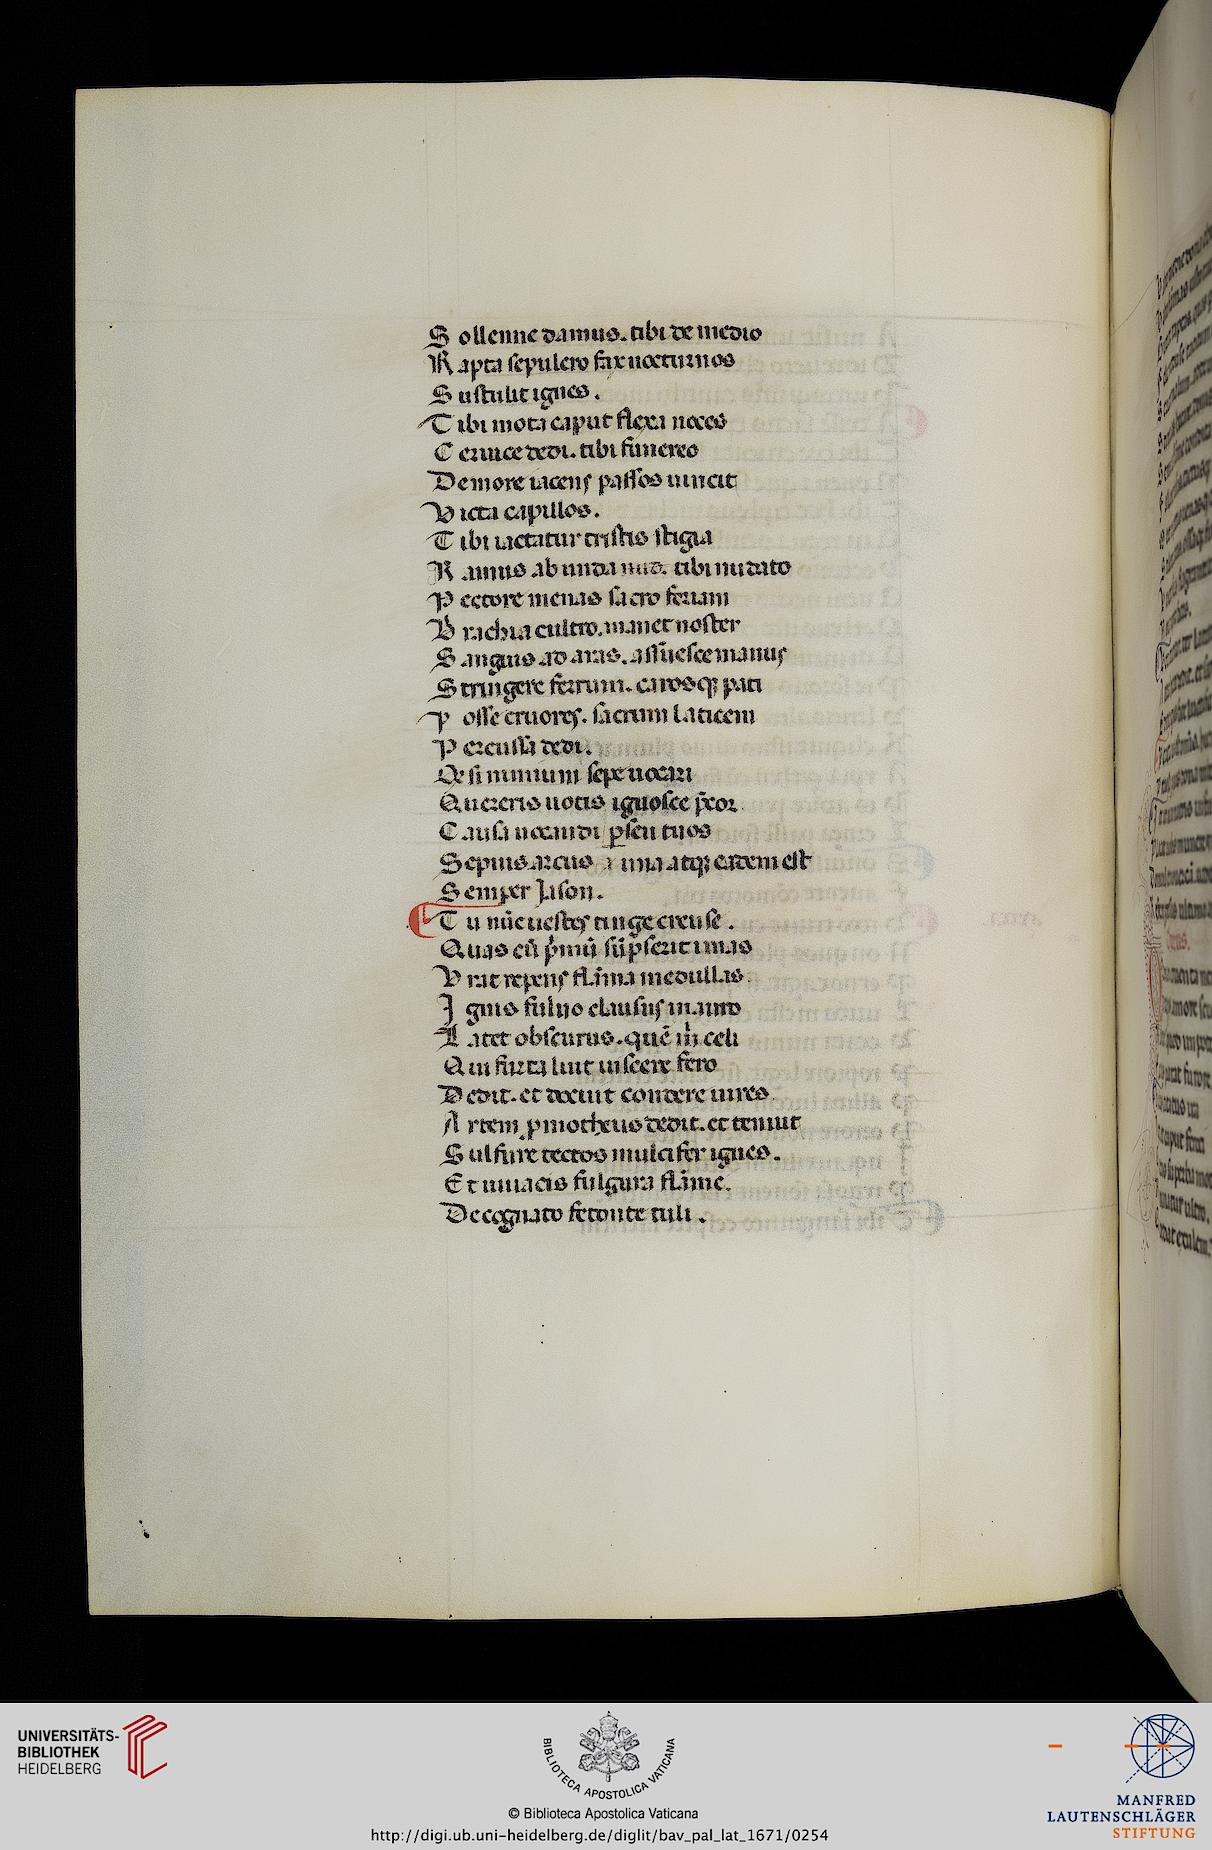 S ollenne damus. tibi de medio
R apta sepulcro fax nocturnos
S ustulit ignes.
T ibi mota caput flexa uoces
C eruice dedi. tibi funereo
De more iacens passos uincit
V icta capillos.
T ibi iactatur tristis stigia
R amus ab unda tibi nudato
P ectore menas sacro feriam
B rachia cultro. manet noster
S anguis ad aras. assuesce manus
S tringere ferrum. carosq; pati
P osse cruores. sacrum laticem
P ercussa dedi.
Q e si nimium sepe uocari
Q uereris uotis ignosce p̄cor
C ausa uocandi ꝑseu tuos
S epius arcus a una atq; eadem est
S emper Jason.
T u nūc uestes tinge creuse.
Q uas cū p̄mū sūpserit imas
V rat repens flāma medullas.
I gnis fuluo clausus in auro
L atet obscurus. quē m̄ celi
Q ui furta luit uiscere feto
D edit. et docuit condere uires
A rtem pmotheus dedit. et tenuit
S ulfure tectos mulcifer ignes.
E t uiuacis fulgura flāme.
De cognato fetonte tuli.
UNIVERSITÄTS-
BIBLIOTHEK
HEIDELBERG
BIBLIOTECA APOSTOLICA VATICANA
© Biblioteca Apostolica Vaticana
http://digi.ub.uni-heidelberg.de/diglit/bav_pal_lat_1671/0254
MANFRED
LAUTENSCHLÄGER
STIFTUNG